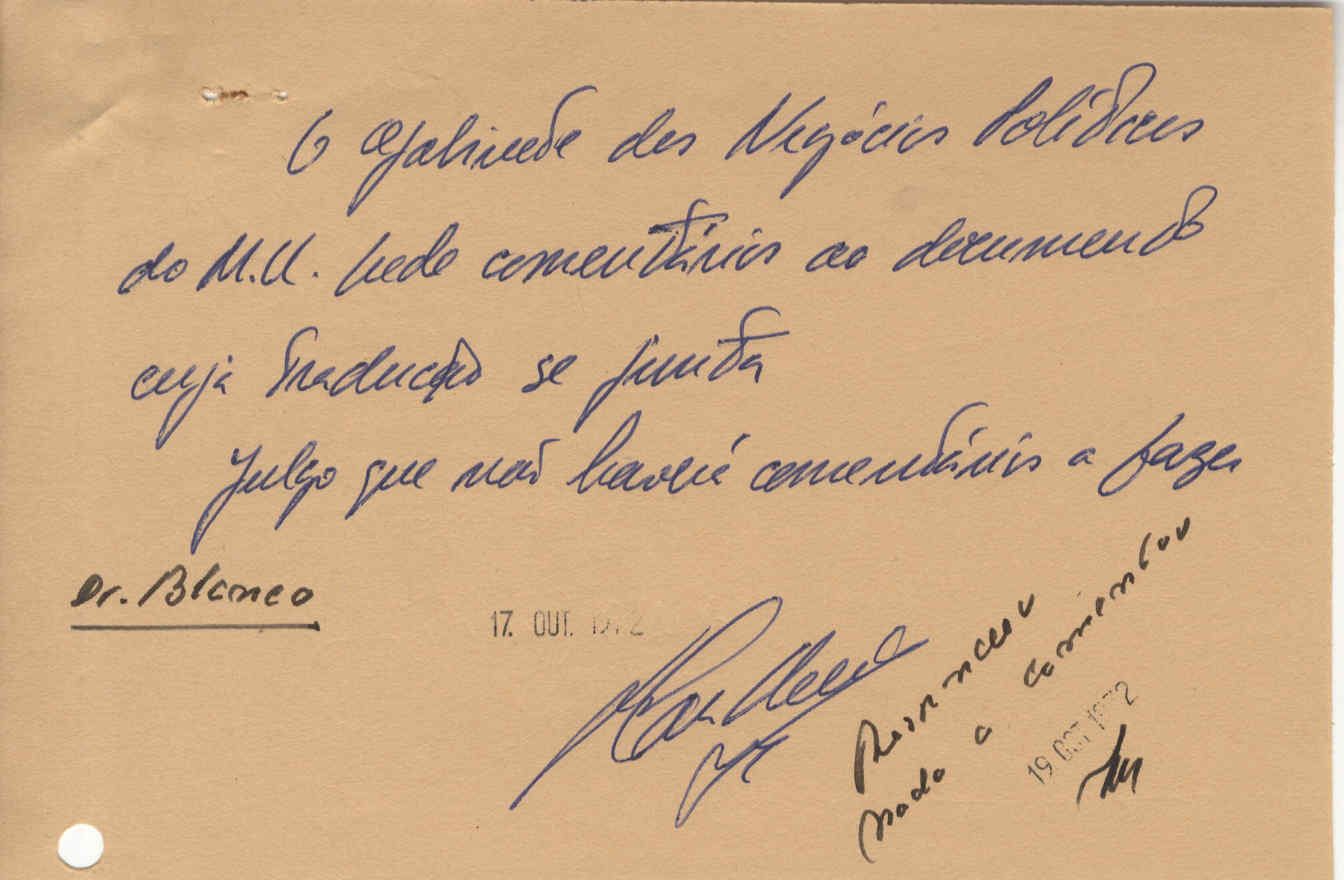 O Gabinete dos Negócios Políticos
do M.U. pede comentários ao documento
cuja tradução se junta
Julgo que não haverá comentários a fazer
Dr. Blanco
17. OUT. 1972
nada a comentar
19 OUT 1972